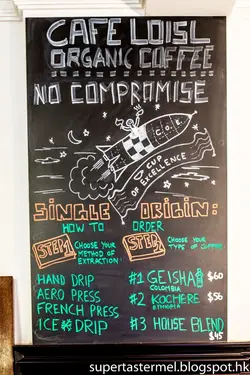 CAFE LOISL
ORGANIC COFFEE
NO COMPROMISE
C.O.E.
CUP
OF EXCELLENCE
SINGLE ORIGIN:
HOW TO ORDER
STEP 1 CHOOSE YOUR METHOD OF EXTRACTION!
STEP 2 CHOOSE YOUR TYPE OF COFFEE!
HAND DRIP
AERO PRESS
FRENCH PRESS
ICE DRIP
#1 GEISHA $60
COLOMBIA
#2 KOCHERE $56
ETHIOPIA
#3 HOUSE BLEND
$45
supertastermel.blogspot.h